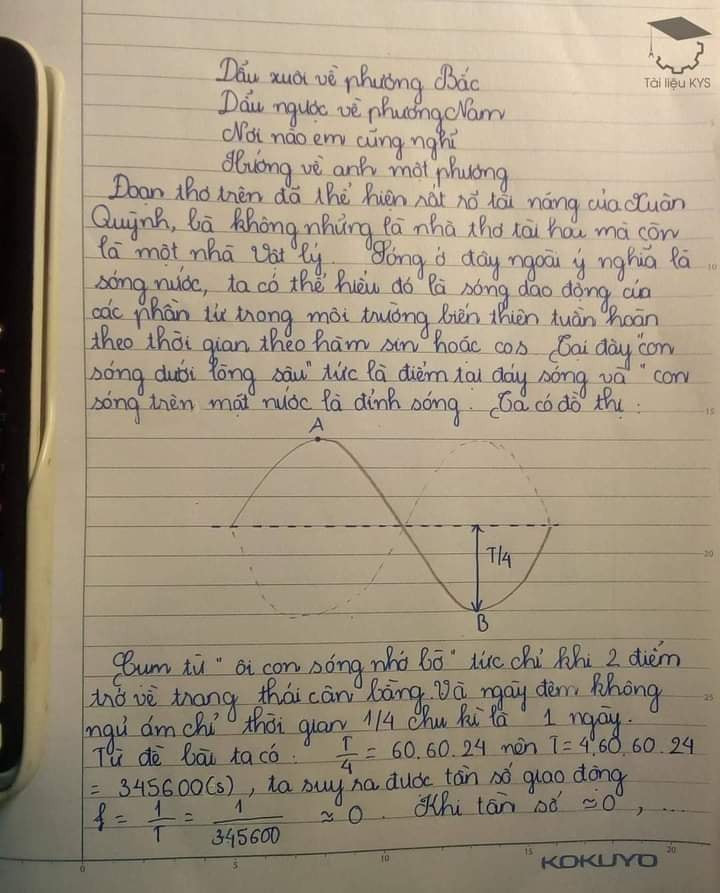 Tài liệu KYS
Dẫu xuôi về phương Bắc
Dẫu ngược về phương Nam
Nơi nào em cũng nghĩ
Hướng về anh một phương
Đoạn thơ trên đã thể hiện rất rõ tài năng của Xuân
Quỳnh, bà không những là nhà thơ tài hoa mà còn
là một nhà Vật lý. Sóng ở đây ngoài ý nghĩa là
sóng nước, ta có thể hiểu đó là sóng dao động của
các phần tử trong môi trường biến thiên tuần hoàn
theo thời gian theo hàm sin hoặc cos. Tại đây "con
sóng dưới lòng sâu" tức là điểm tại đáy sóng và "con
sóng trên mặt nước là đỉnh sóng. Ta có đồ thị:
A
T/4
B
Cụm từ "ôi con sóng nhớ bờ" tức chỉ khi 2 điểm
trở về trạng thái cân bằng. Và ngày đêm không
ngủ ám chỉ thời gian 1/4 chu kì là 1 ngày.
Từ đề bài ta có: T/4 = 60.60.24 nên T = 4.60.60.24
= 345600(s), ta suy ra được tần số giao động
f = 1/T = 1/345600 ≈ 0. Khi tần số ≈ 0, ...
10
15
20
25
0 5 10 15 20
KOKUYO